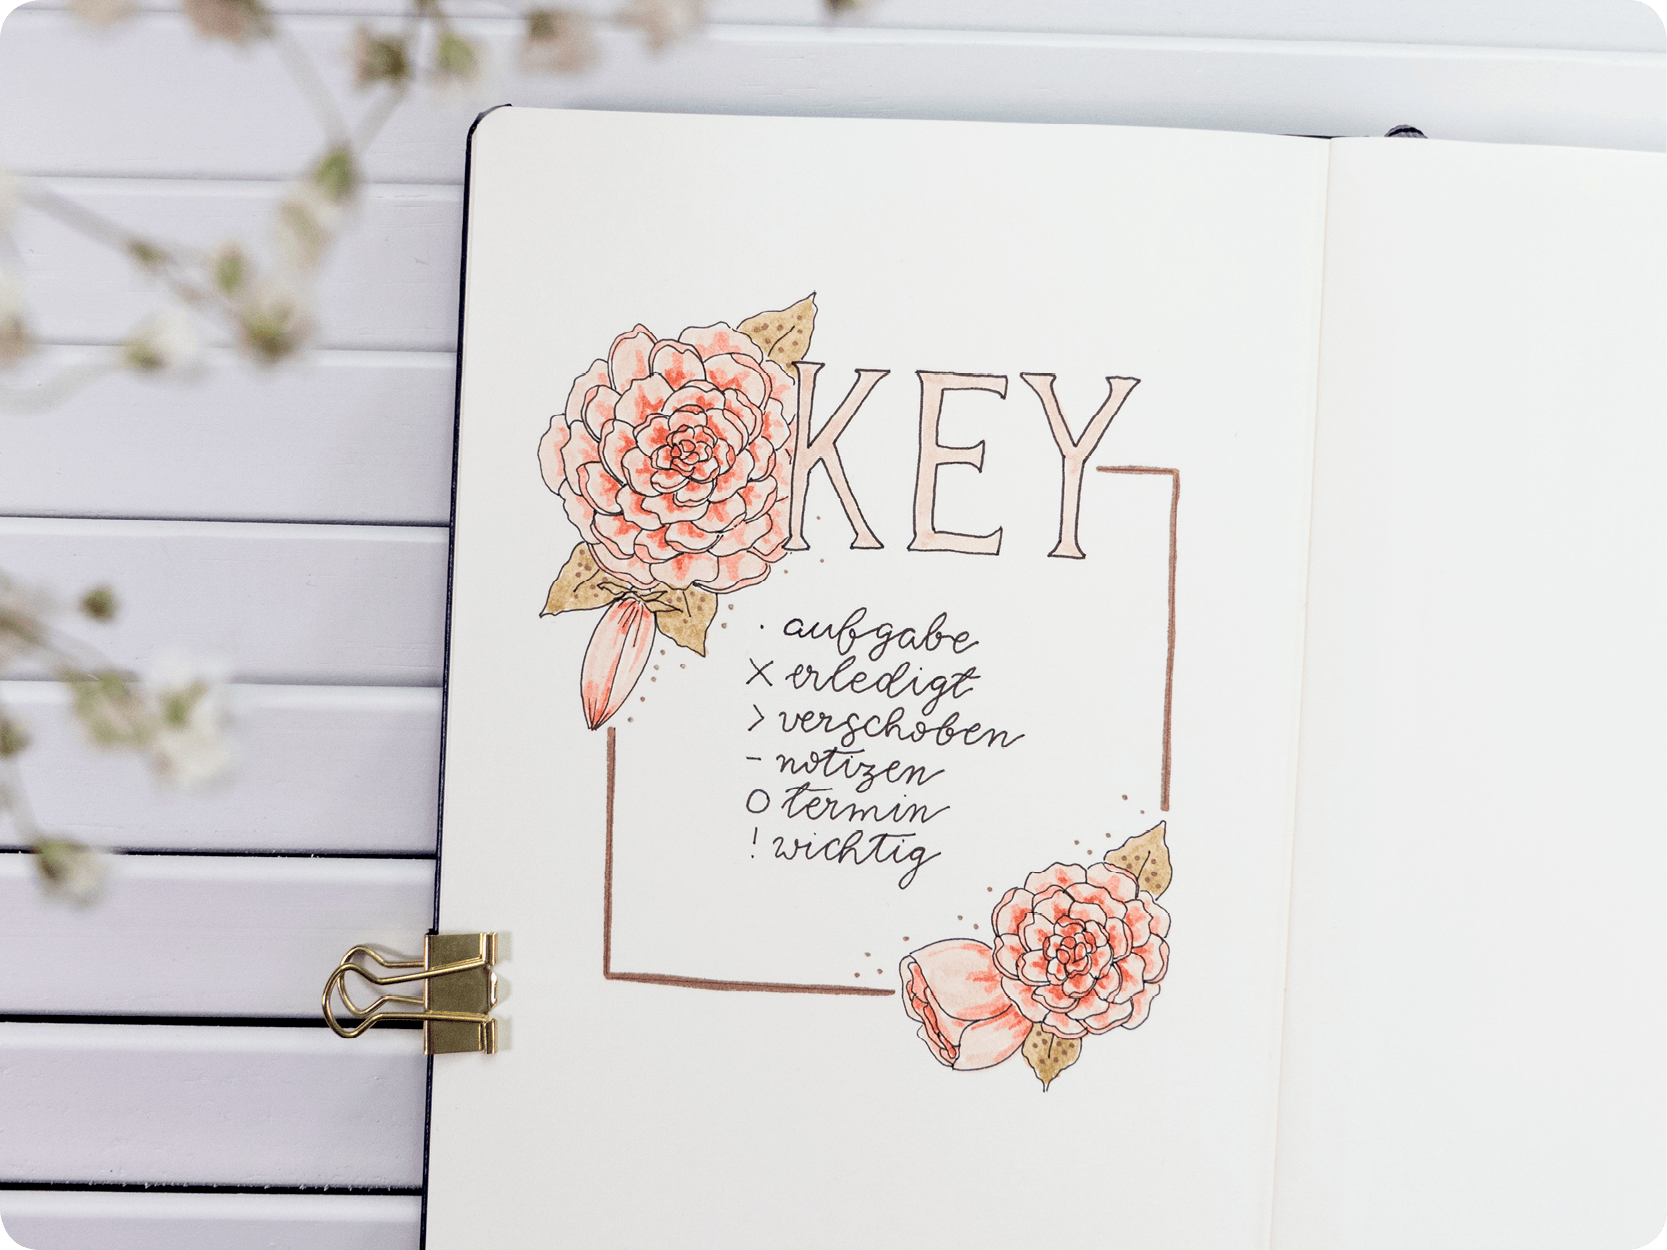 KEY
· aufgabe
X erledigt
> verschoben
- notizen
O termin
! wichtig